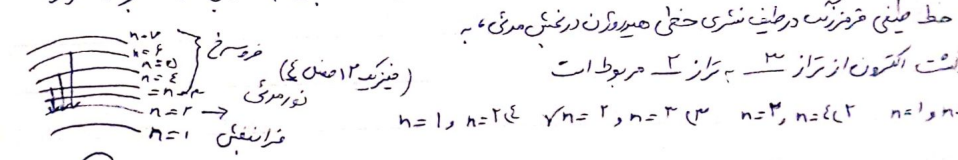 خط طیفی قرمز رنگ در طیف نشری خطی هیدروژن در بخش مرئی، به
گشت الکترون از تراز ۳ به تراز ۲ مربوط است
(فیزیک ۱۲ فصل ۴)
n=1 و n= ۲) n=۴ و n=۳ ۳) n=۳ و n=۲ ✓ ۴) n=۲ و n=۱
n=۷
n=۶
n=۵
n=۴
n=۳
n=۲ →
n=۱
فروسرخ
نور مرئی
فرابنفش